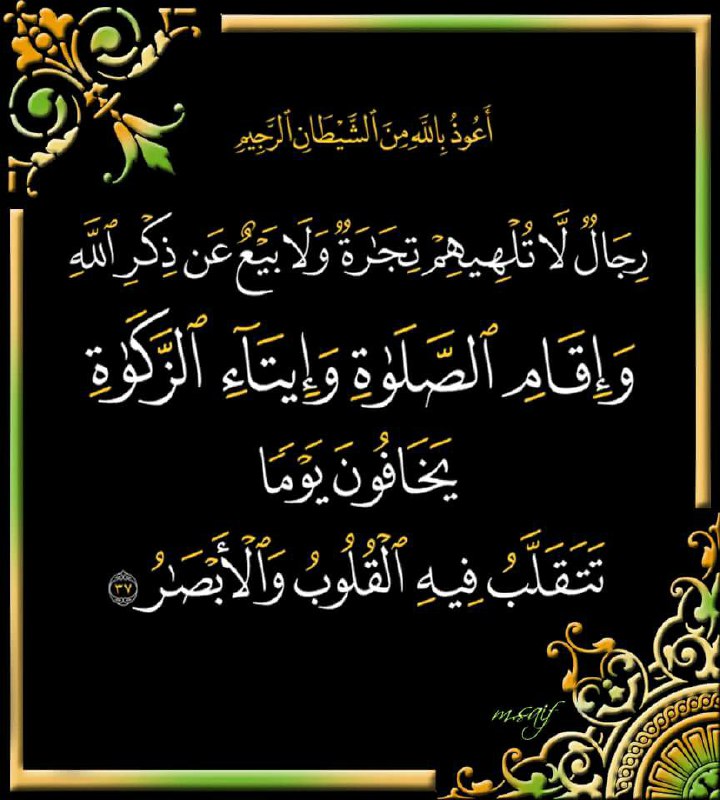 أَعُوذُ بِاللَّهِ مِنَ ٱلشَّيْطَانِ ٱلرَّجِيمِ
رِجَالٌ لَّا تُلْهِيهِمْ تِجَٰرَةٌ وَلَا بَيْعٌ عَن ذِكْرِ ٱللَّهِ
وَإِقَامِ ٱلصَّلَوٰةِ وَإِيتَآءِ ٱلزَّكَوٰةِ
يَخَافُونَ يَوْمًا
تَتَقَلَّبُ فِيهِ ٱلْقُلُوبُ وَٱلْأَبْصَٰرُ ٣٧
m.saif